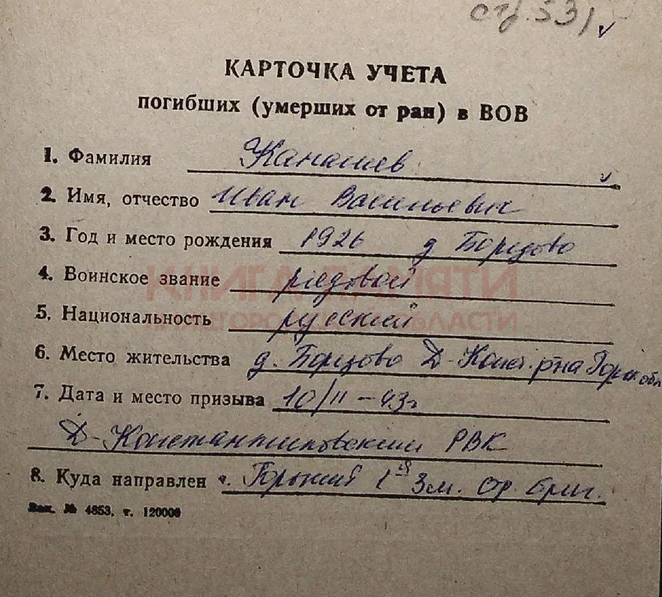 стр. 331
КАРТОЧКА УЧЕТА
погибших (умерших от ран) в ВОВ
1. Фамилия Канашев
2. Имя, отчество Иван Васильевич
3. Год и место рождения 1926 д Борцово
4. Воинское звание рядовой
КНИГА ПАМЯТИ
5. Национальность русский
НИЖЕГОРОДСКОЙ ОБЛАСТИ
6. Место жительства д. Борцово Д-Конст. р-на Горьк обл
7. Дата и место призыва 10/II-43г
Д-Константиновский РВК
8. Куда направлен г. Горький 1ая Зм. ср. бриг.
Зак. № 4853, т. 120000